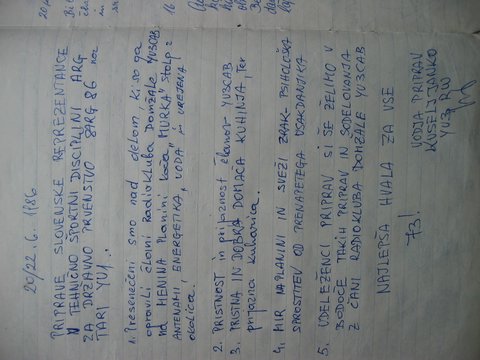 20/22. 6. 1986
PRIPRAVE SLOVENSKE REPREZENTANCE
V TEHNIČNO ŠPORTNI DISCIPLINI ARG
ZA DRŽAVNO PRVENSTVO ARG 86 NA
TARI YU4.
1. Presenečeni smo nad delom, ki so ga
opravili člani Radiokluba Domžale YU3CAB
na MENINA Planini koča "MURKA" stolp z
ANTENAMI, ENERGETIKA, VODA in urejena
okolica.
2. PRISTNOST in prijaznost članov YU3CAB
3. PRISTNA IN DOBRA DOMAČA KUHINJA ter
prijazna kuharica.
4. MIR NA PLANINI IN SVEŽI ZRAK - PSIHOLOŠKA
SPROSTITEV OD TRENAPETEGA VSAKDANJIKA
5. UDELEŽENCI PRIPRAV SI ŠE ŽELIMO V
BODOČE TAKIH PRIPRAV IN SODELOVANJA
Z ČANI RADIOKLUBA DOMŽALE YU3CAB
NAJLEPŠA HVALA ZA VSE
73!
VODJA PRIPRAV
YU3